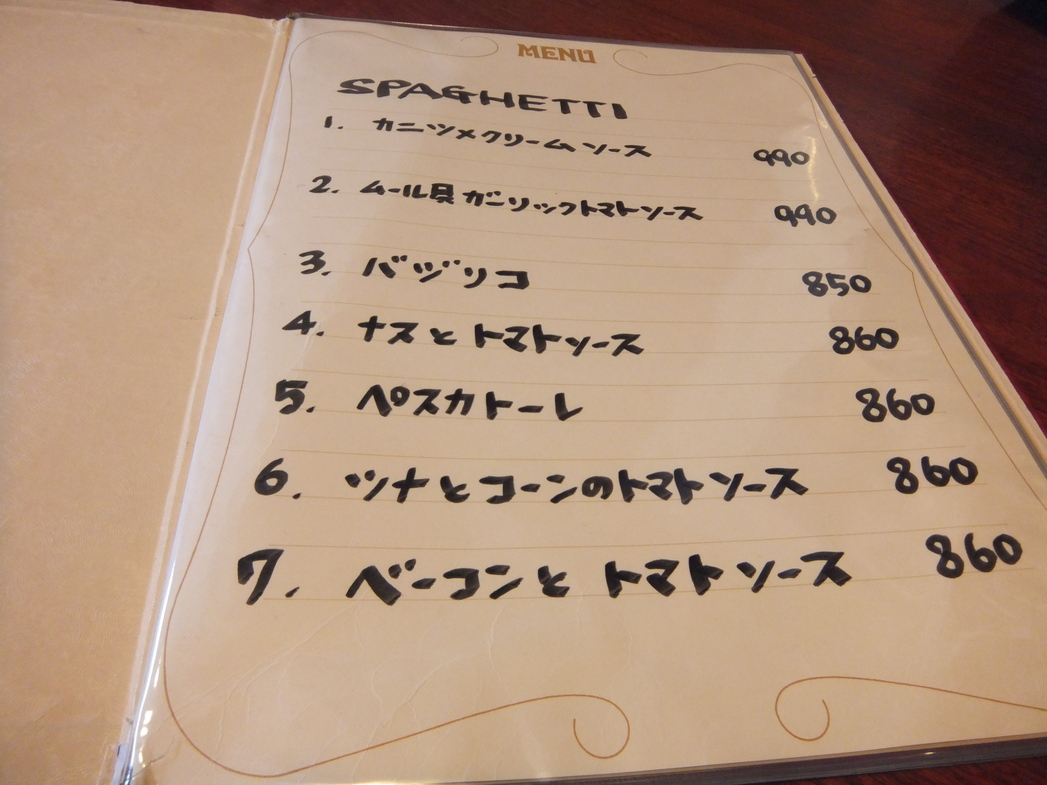 MENU
SPAGHETTI
1. カニツメクリームソース 990
2. ムール貝ガーリックトマトソース 990
3. バヅリコ 850
4. ナスとトマトソース 860
5. ペスカトーレ 860
6. ツナとコーンのトマトソース 860
7. ベーコンとトマトソース 860